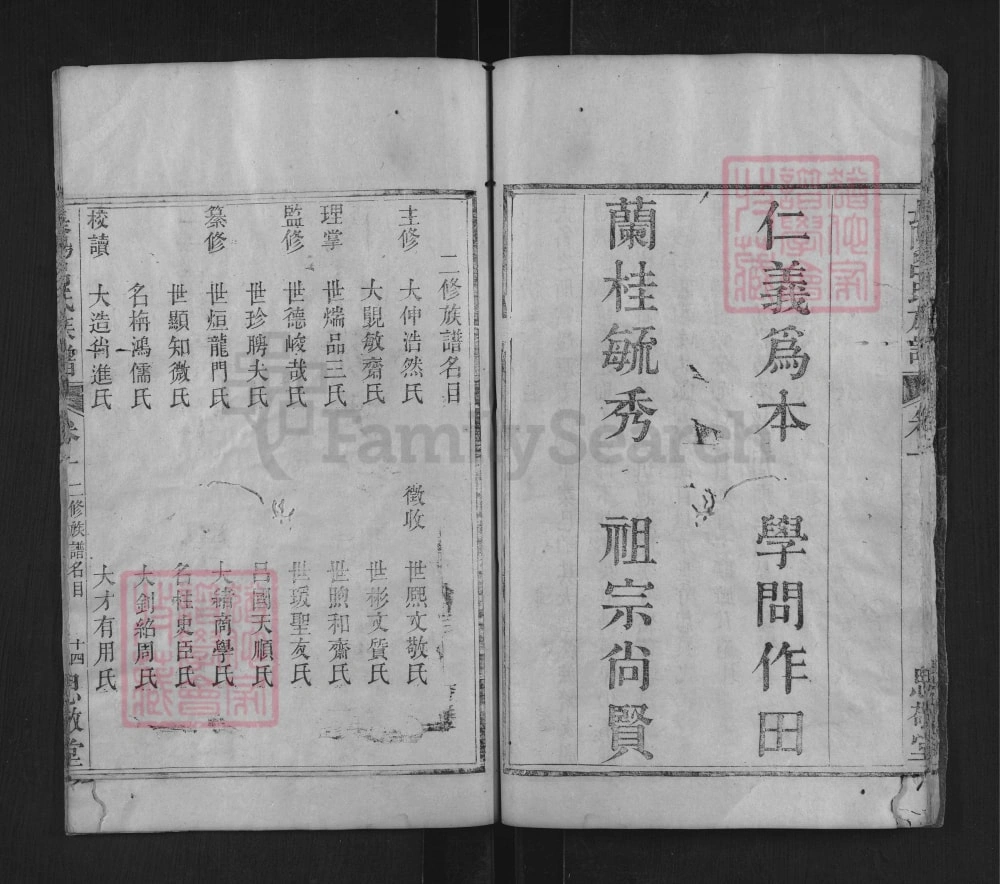 仁義爲本 學問作田
蘭桂毓秀 祖宗尙賢
卷一
二修族譜名目
主修 大伸浩然氏
大覞敏齋氏
理掌 世煓品三氏
監修 世德峻哉氏
世珍聘夫氏
纂修 世烜龍門氏
世顯知微氏
名栴鴻儒氏
校讀 大造尙進氏
徵收 世熙文敬氏
世彬文質氏
世煦和齋氏
世坂聖友氏
天順氏
大緒商學氏
名桂史臣氏
大釗紹周氏
大才有用氏
氏族譜 卷一 二修族譜名目 十四 思敬堂
FamilySearch